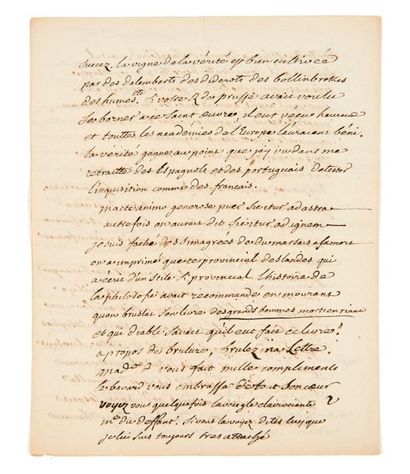 succez. la vigne de la vérité est bien cultivée
par des dalemberts des diderots des bollinbrokes
des humes etc. si votre R du prusse avait voulu
se borner a ce saint œuvre, il eut vécu heureux
et touttes les academies de l'europe l'auraient beni.
la vérité gagne au point que j'ay vu dans ma
retraitte des Espagnols et des portuguais detester
l'inquisition comme des francais.
macte animo generose puer sic itur ad astra
autrefois on aurait dit sic itur ad ignem
je suis faché des simagrées de dumarsais a sa mort
on a imprimé que ce provincial deslandes qui
a écrit d'un stile si provincial l'histoire de
la philosofie avait recommandé en mourant
qu'on brulast son livre des grands hommes morts en riant
et qui diable savait qu'il eut fait ce livre!
a propos de bruture, brulez ma Lettre.
made vous fait mille compliments
le bavard vous embrasse de tout son cœur
voyez vous quelquefois l'aveugle clairvoiante
me du deffant? si vous la voyez dites luy que
je lui suis toujours tres attaché